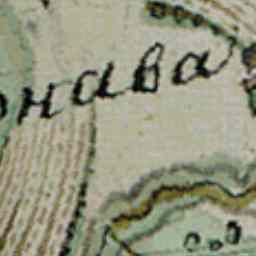 онава